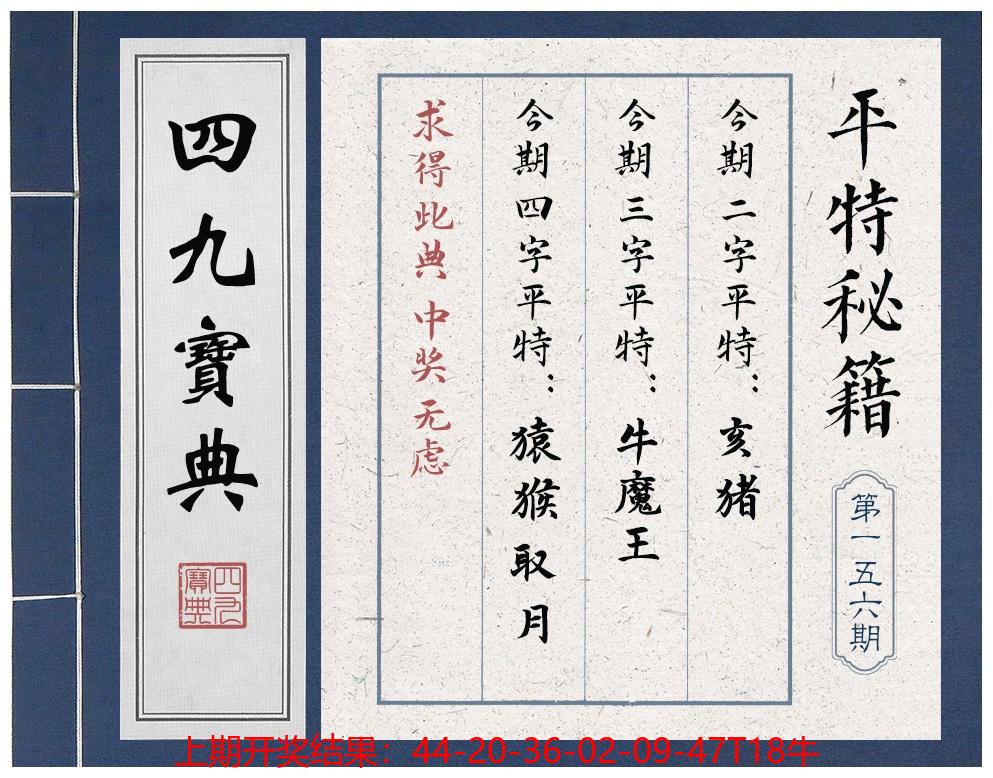 平特秘籍
第一五六期
今期二字平特：亥猪
今期三字平特：牛魔王
今期四字平特：猿猴取月
求得此典 中奖无虑
四九寶典
四九寶典
上期开奖结果：44-20-36-02-09-47T18牛